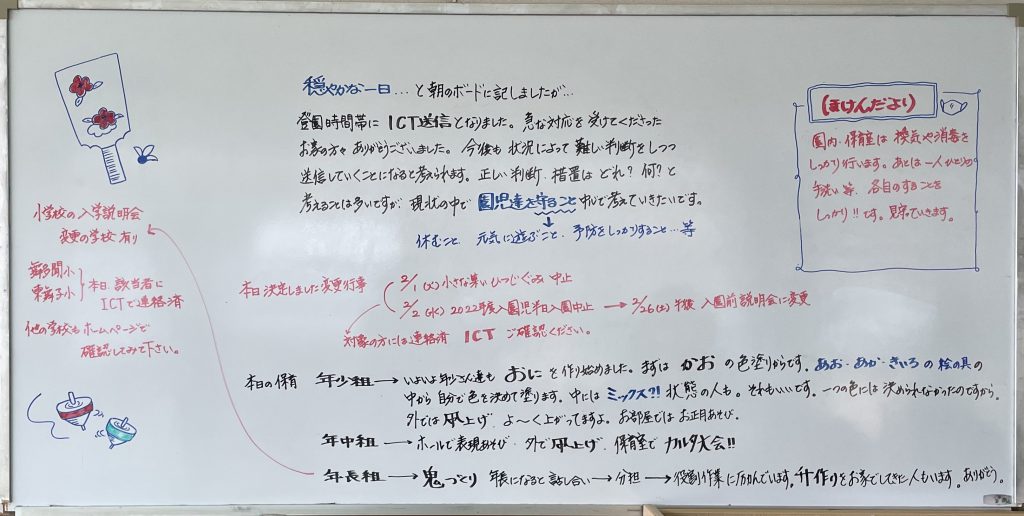 穏やかな一日…と朝のボードに記しましたが…
登園時間帯に ICT送信となりました。急な対応を受けてくださった
お家の方々 ありがとうございました。今後も 状況によって 難しい判断をしつつ
送信していくことになると考えられます。正しい判断、措置は どれ？何？と
考えることは多いですが、現状の中で 園児達を守ること 中心で考えていきたいです。
↓
休むこと、元気に遊ぶこと、予防をしっかりすること…等
(ほけんだより)
園内・保育室は 換気や消毒を
しっかり行います。あとは 一人ひとりの
手洗い等、各自のすることを
しっかり!!です。見守っていきます。
小学校の入学説明会
変更の学校有り
舞多聞小
東舞子小
本日、該当者に
ICTで連絡済
他の学校もホームページで
確認してみて下さい。
本日決定しました変更行事
2/1 (火) 小さな集い ひつじぐみ 中止
2/2 (水) 2022年度入園児半日入園中止 → 2/26(土) 午後 入園前説明会に変更
対象の方には連絡済 ICT ご確認ください。
本日の保育 年少組 → いよいよ年少さん達も おに を作り始めました。まずは かお の色塗りからです。あお・あか・きいろ の 絵の具の
中から 自分で色を決めて塗ります。中には ミックス?! 状態の人も。それもいいです。一つの色には 決められなかったのですから。
外では 凧上げ、よ〜く上がってますよ。お部屋では お正月あそび。
年中組 → ホールで表現あそび・外で凧上げ・保育室で カルタ大会!!
年長組 → 鬼づくり 年長になると 話し合い → 分担 → 役割作業に励んでいます。升作りをお家でしてきた人もいます。ありがとう。